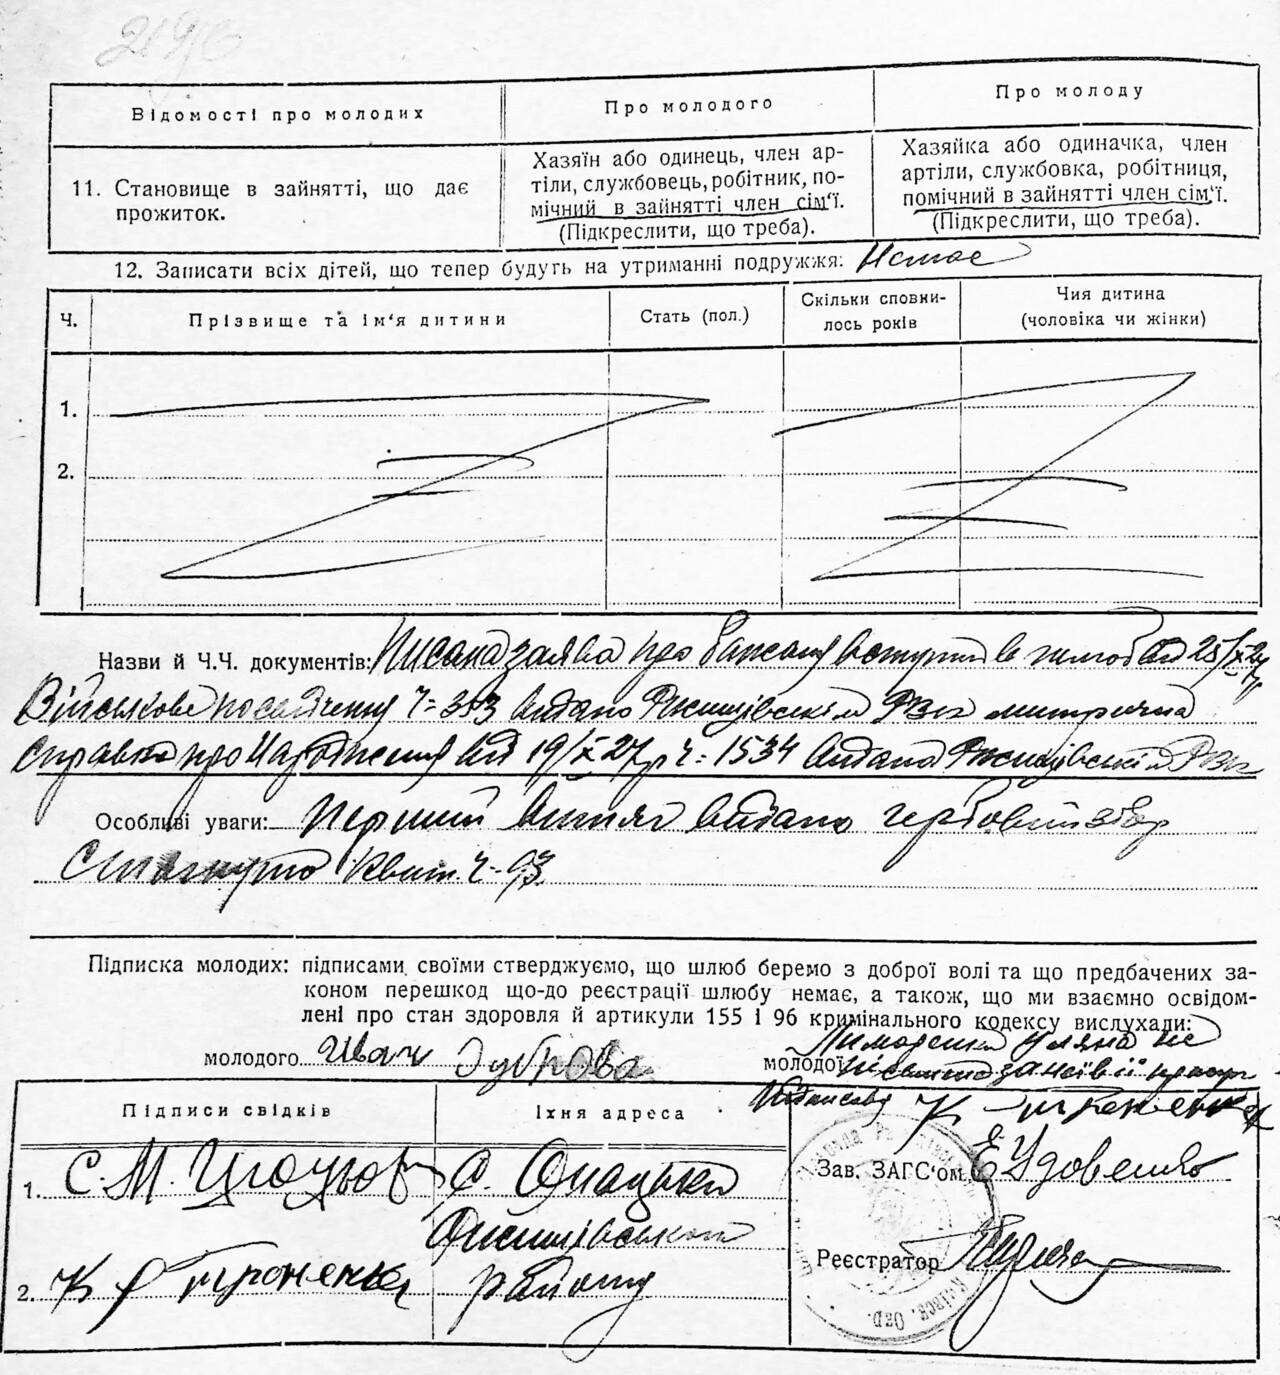 Відомості про молодих
Про молодого
Про молоду
11. Становище в зайнятті, що дає
прожиток.
Хазяїн або одинець, член ар-
тіли, службовець, робітник, по-
мічний в зайнятті член сім'ї.
(Підкреслити, що треба).
Хазяйка або одиначка, член
артіли, службовка, робітниця,
помічний в зайнятті член сім'ї.
(Підкреслити, що треба).
12. Записати всіх дітей, що тепер будуть на утриманні подружжя: Немає
Ч.
Прізвище та ім'я дитини
Стать (пол.)
Скільки сповни-
лось років
Чия дитина
(чоловіка чи жінки)
1.
2.
Назви й Ч.Ч. документів: Писана заява про бажання вступити в шлюб від
Військове посвідчення Ч= 353 видано Ржищівським РВК метрична
справка про народження від 19/X 27 р ч= 1534 видана Ржищівським РВК
Особливі уваги: Перший витяг видано гербовий збір
Стягнуто Квит. Ч-93
Підписка молодих: підписами своїми стверджуємо, що шлюб беремо з доброї волі та що предбачених за-
коном перешкод що-до реєстрації шлюбу немає, а також, що ми взаємно освідом-
лені про стан здоровля й артикули 155 і 96 кримінального кодексу вислухали:
молодого Иван Дуброва
молодої Лимаренка Уляна не
письменна за неї її прозьб
підписався К
Підписи свідків
Їхня адреса
1. С. М.
С.
Ржищівського
2. К
району
Зав. ЗАГС'ом Е Удовенко
Реєстратор